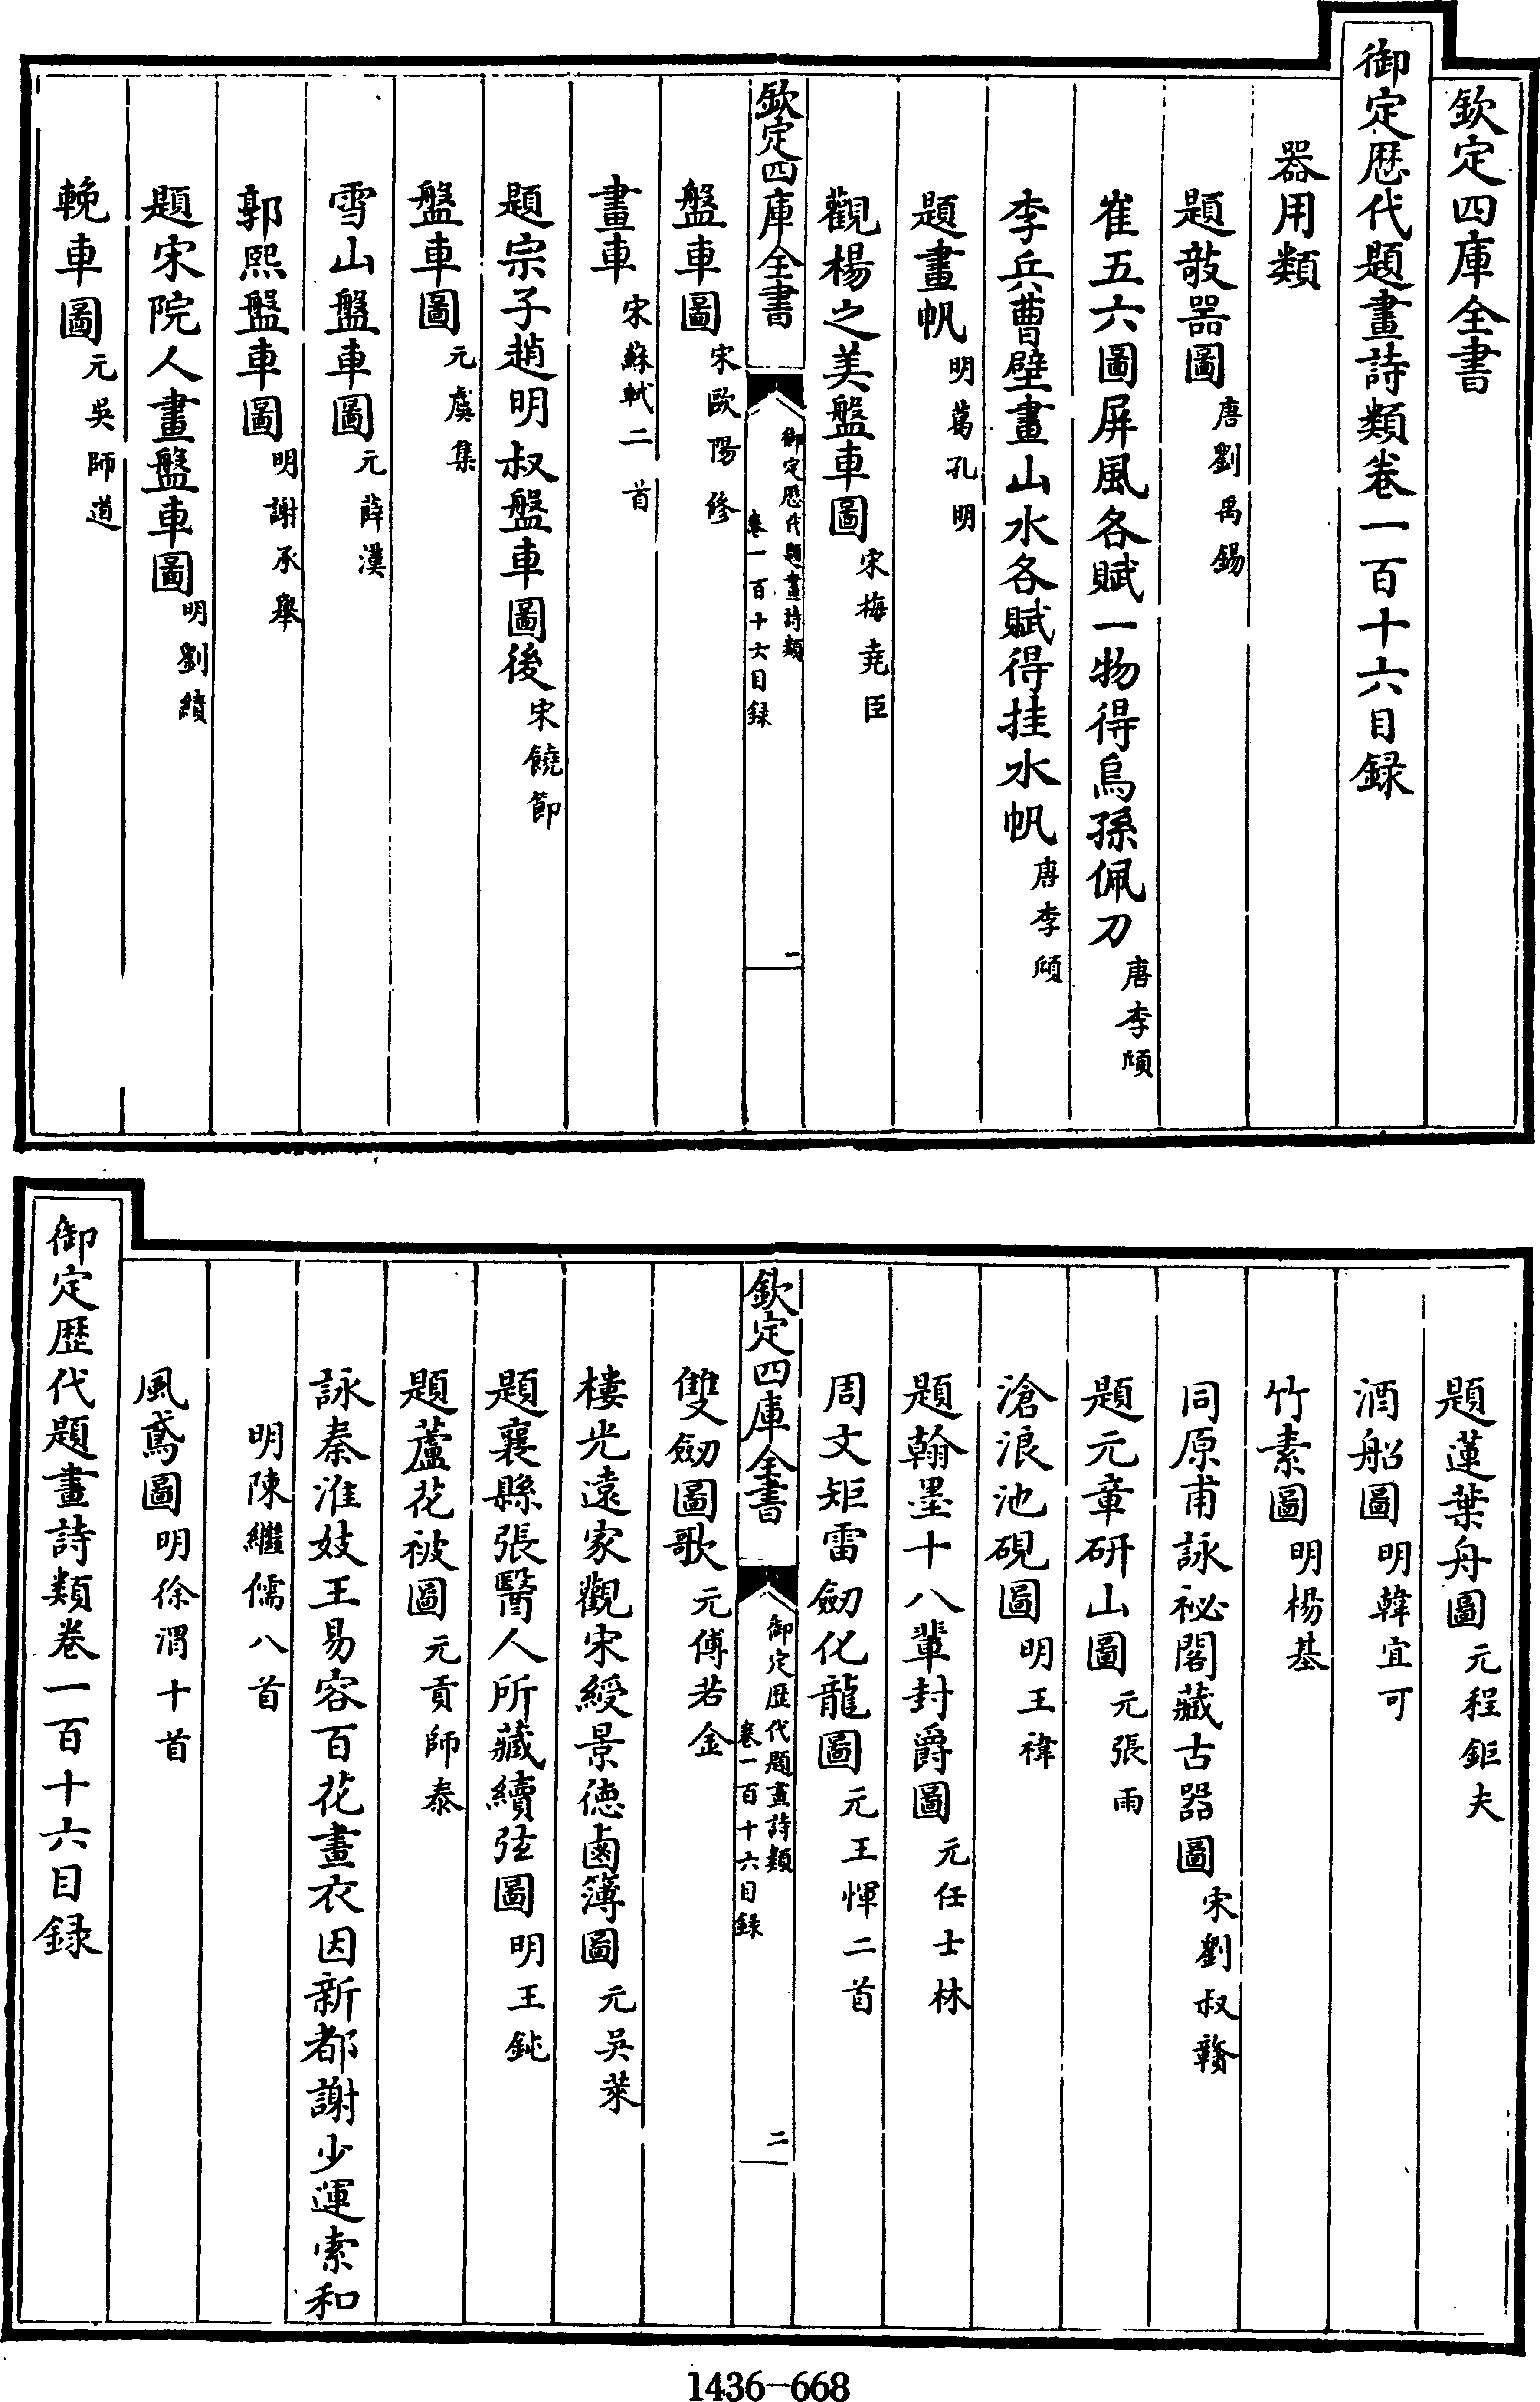 欽定四庫全書
御定歴代題畫詩類卷一百十六目録
器用類
題敧器圖唐劉禹錫
崔五六圖屏風各賦一物得烏孫佩刀唐李頎
李兵曹壁畫山水各賦得挂水帆唐李頎
題畫帆明葛孔明
觀楊之美盤車圖宋梅堯臣
欽定四庫全書
御定歴代題畫詩類
卷一百十六目録
一
盤車圖宋歐陽修
畫車宋蘇軾二首
題宗子趙明叔盤車圖後宋饒節
盤車圖元虞集
雪山盤車圖元薛漢
郭熙盤車圖明謝承舉
題宋院人畫盤車圖明劉績
輓車圖元吳師道
題蓮葉舟圖元程鉅夫
酒船圖明韓宜可
竹素圖明楊基
同原甫詠祕閣藏古器圖宋劉叔贛
題元章研山圖元張雨
滄浪池硯圖明王禕
題翰墨十八輩封爵圖元任士林
周文矩雷劒化龍圖元王惲二首
欽定四庫全書
御定歴代題畫詩類
卷一百十六目録
二
雙劒圖歌元傅若金
樓光遠家觀宋綬景徳鹵簿圖元吳萊
題襄縣張醫人所藏續弦圖明王鈍
題蘆花被圖元貢師泰
詠秦淮妓王易容百花畫衣因新都謝少運索和
明陳繼儒八首
風鳶圖明徐渭十首
御定歴代題畫詩類卷一百十六目録
1436-668